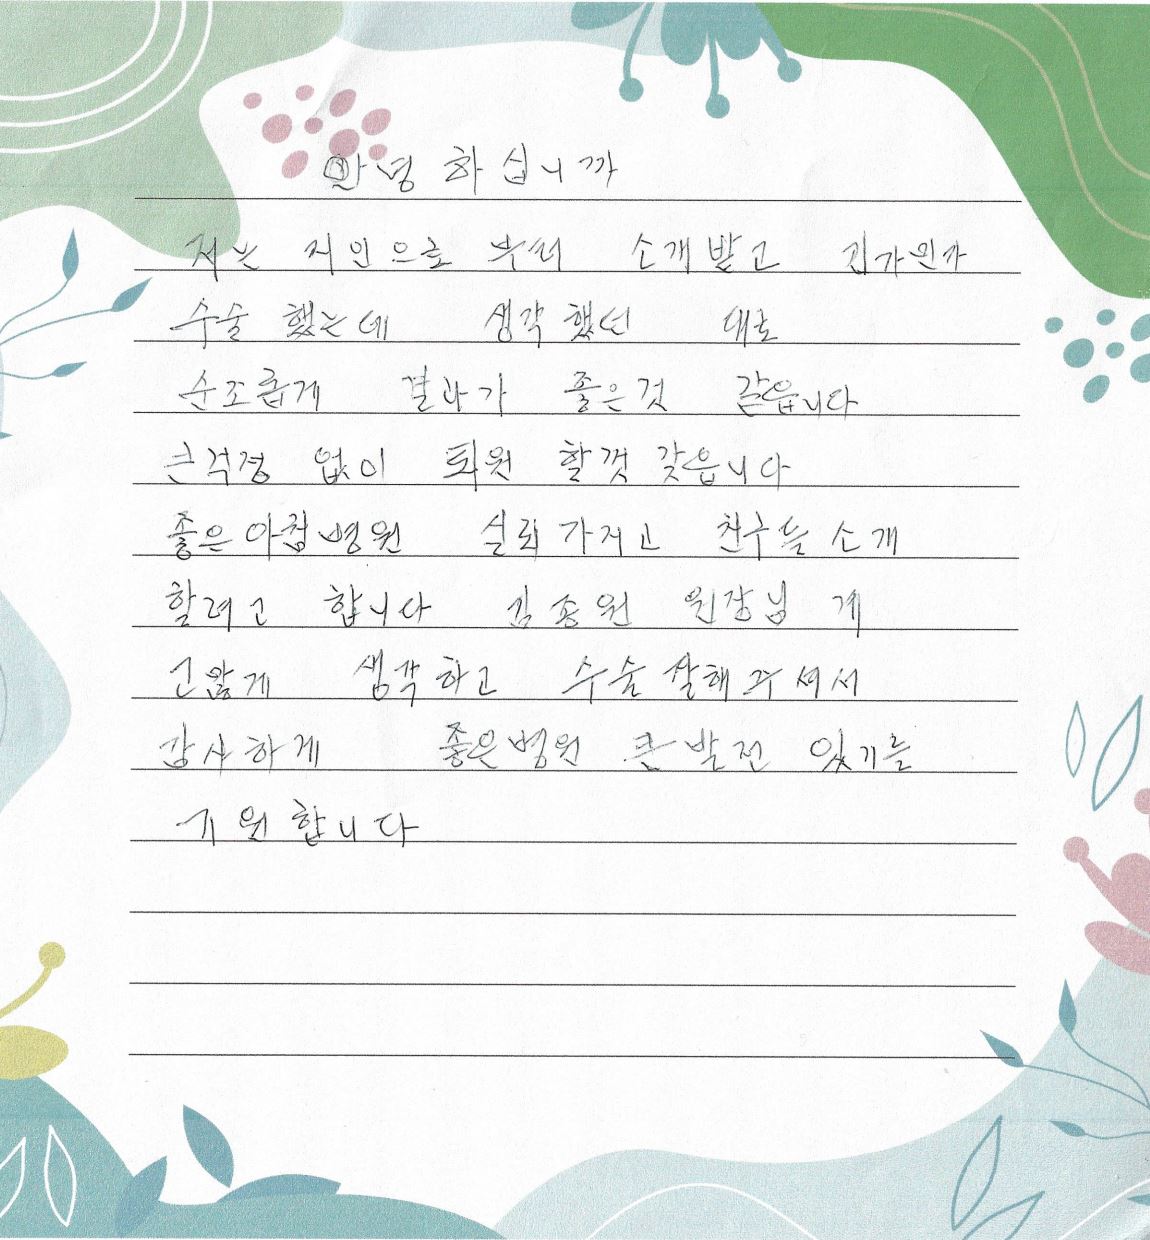 안녕 하십니까
저는 지인으로 부터 소개받고
수술 했는데 생각 했던 대로
순조롭게 결과가 좋은것 같읍니다
큰걱정 없이 퇴원 할껏 갖읍니다
좋은아침병원 신뢰 가지고 친구들 소개
할려고 합니다 김종원 원장님 게
고맙게 생각하고 수술 잘해주셔서
감사하게 좋은병원 큰발전 있기를
기원합니다